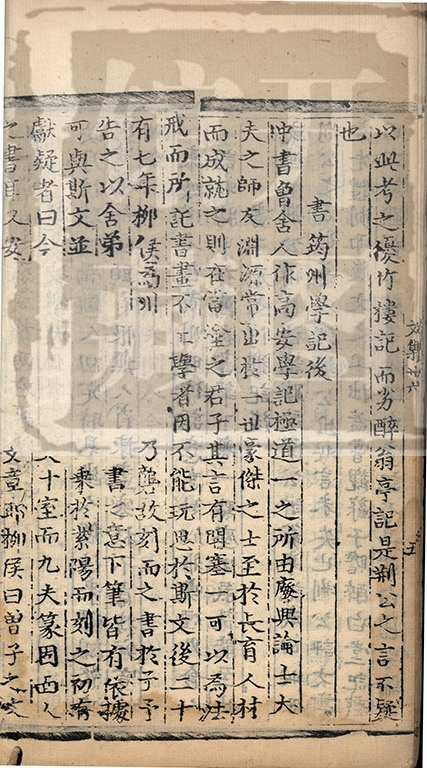 以此考之優竹樓記而劣醉翁亭記是荊公之言不疑
也
書筠州學記後
中書曾舍人作高安學記極道一之所由廢興論士大
夫之師友淵源常出於一世豪傑之士至於長育人材
而成就之則在當塗之君子其言有開塞可以為法
戒而所託書畫不工學者因不能玩思於斯文後二十
有七年栁侯為州 乃龔故刻而之書於予予
告之以舍弟 書意下筆皆有依據
可與斯文並 乗於紫陽而刻之初有
獻疑者曰今 十室而九夫篆固西人
之書人安 文章邪栁侯曰曾子之文
文集廿六
五